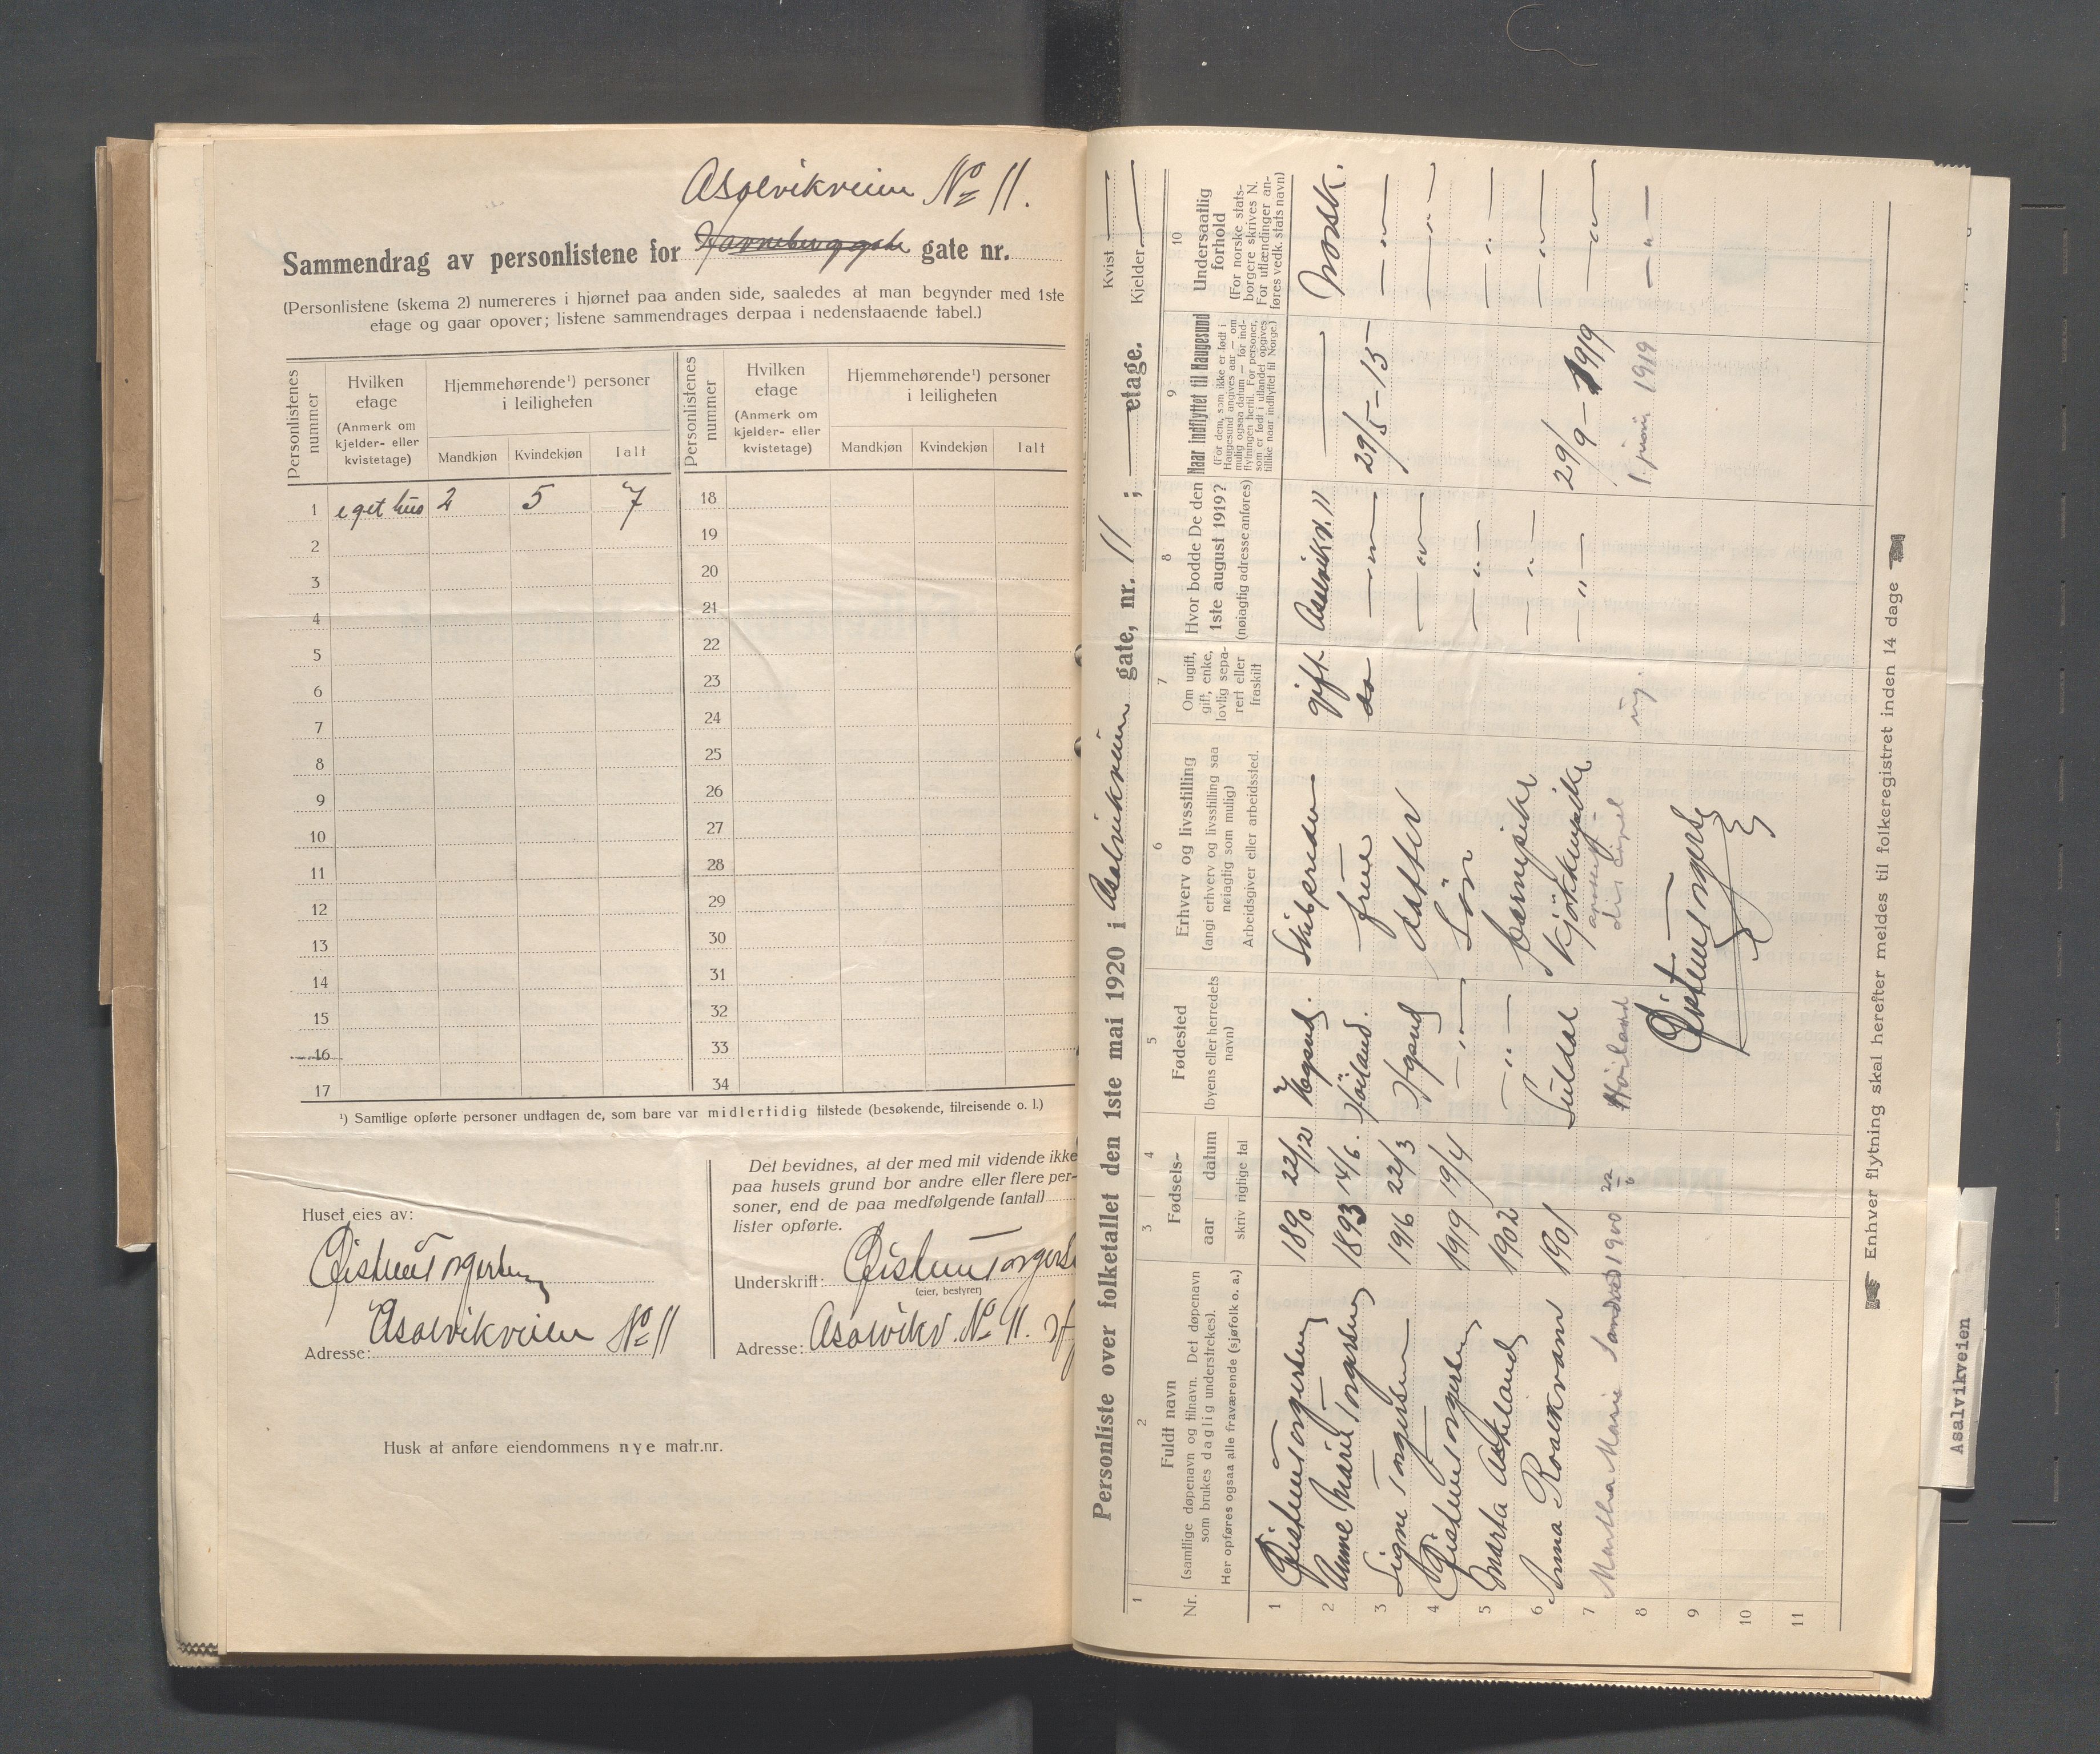 Asalvikveien No 11.
Sammendrag av personlistene for Haraldsberggate gate nr.
(Personlistene (skema 2) numereres i hjørnet paa anden side, saaledes at man begynder med 1ste
etage og gaar opover; listene sammendrages derpaa i nedenstaaende tabel.)
Personlistenes nummer
Hvilken etage
(Anmerk om kjelder- eller kvistetage)
Hjemmehørende¹) personer i leiligheten
Mandkjøn Kvindekjøn Ialt
Personlistenes nummer
Hvilken etage
(Anmerk om kjelder- eller kvistetage)
Hjemmehørende¹) personer i leiligheten
Mandkjøn Kvindekjøn Ialt
1 eget hus 2 5 7 18
2 19
3 20
4 21
5 22
6 23
7 24
8 25
9 26
10 27
11 28
12 29
13 30
14 31
15 32
16 33
17 34
¹) Samtlige opførte personer undtagen de, som bare var midlertidig tilstede (besøkende, tilreisende o. l.)
Huset eies av:
Øistein Torgersen
Adresse: Asalvikveien No 11
Det bevidnes, at der med mit vidende ikke
paa husets grund bor andre eller flere per-
soner, end de paa medfølgende (antal)
lister opførte.
Underskrift: Øistein Torgers
(eier, bestyrer)
Adresse: Asalvikv. No 11.
Husk at anføre eiendommens nye matr.nr.
Personliste over folketallet den 1ste mai 1920 i Asalvikveien gate, nr. 11 ; — etage. Kvist —
Kjelder —
1 2 3 4 5 6 7 8 9 10
Nr.
Fuldt navn
(samtlige døpenavn og tilnavn. Det døpenavn
som brukes daglig understrekes).
Her opføres ogsaa alle fraværende (sjøfolk o. a.)
Fødsels-
aar datum
skriv rigtige tal
Fødested
(byens eller herredets
navn)
Erhverv og livsstilling
(angi erhverv og livsstilling saa
nøiagtig som mulig)
Arbeidsgiver eller arbeidssted.
Om ugift,
gift, enke,
lovlig sepa-
rert eller
fraskilt
Hvor bodde De den
1ste august 1919?
(nøiagtig adresse anføres)
Naar indflyttet til Haugesund
(For dem, som ikke er født i
Haugesund angives aar — om
mulig ogsaa datum — for ind-
flytningen hertil. For personer,
som er født i utlandet opgives
tillike naar indflyttet til Norge.)
Undersaatlig
forhold
(For norske stats-
borgere skrives N.
For utlændinger an-
føres vedk. stats navn)
1 Øistein Torgersen 1890 22/12 Hgsund. Skibsreder gift Asalvikv. 11 — Norsk.
2 Anne Marie Torgersen 1893 14/6. Høiland. frue do — " — 29/5-15 — " —
3 Signe Torgersen 1916 22/3 Hgsund datter — " — — " —
4 Øistein Torgersen 1919 19/4 — " — Sön — " — — " —
5 Marta Askeland 1902 — " — barnepike — " — — " —
6 Anna Roalkvam 1901 Suldal kjökkenpike — " — 29/9-1919 — " —
7 Martha Marie Sandved 1900 22/6 Höiland ug. 1 juni 1919 — " —
8
9
10
11
Øistein Torgersen
Enhver flytning skal herefter meldes til folkeregistret inden 14 dage
Asalvikveien